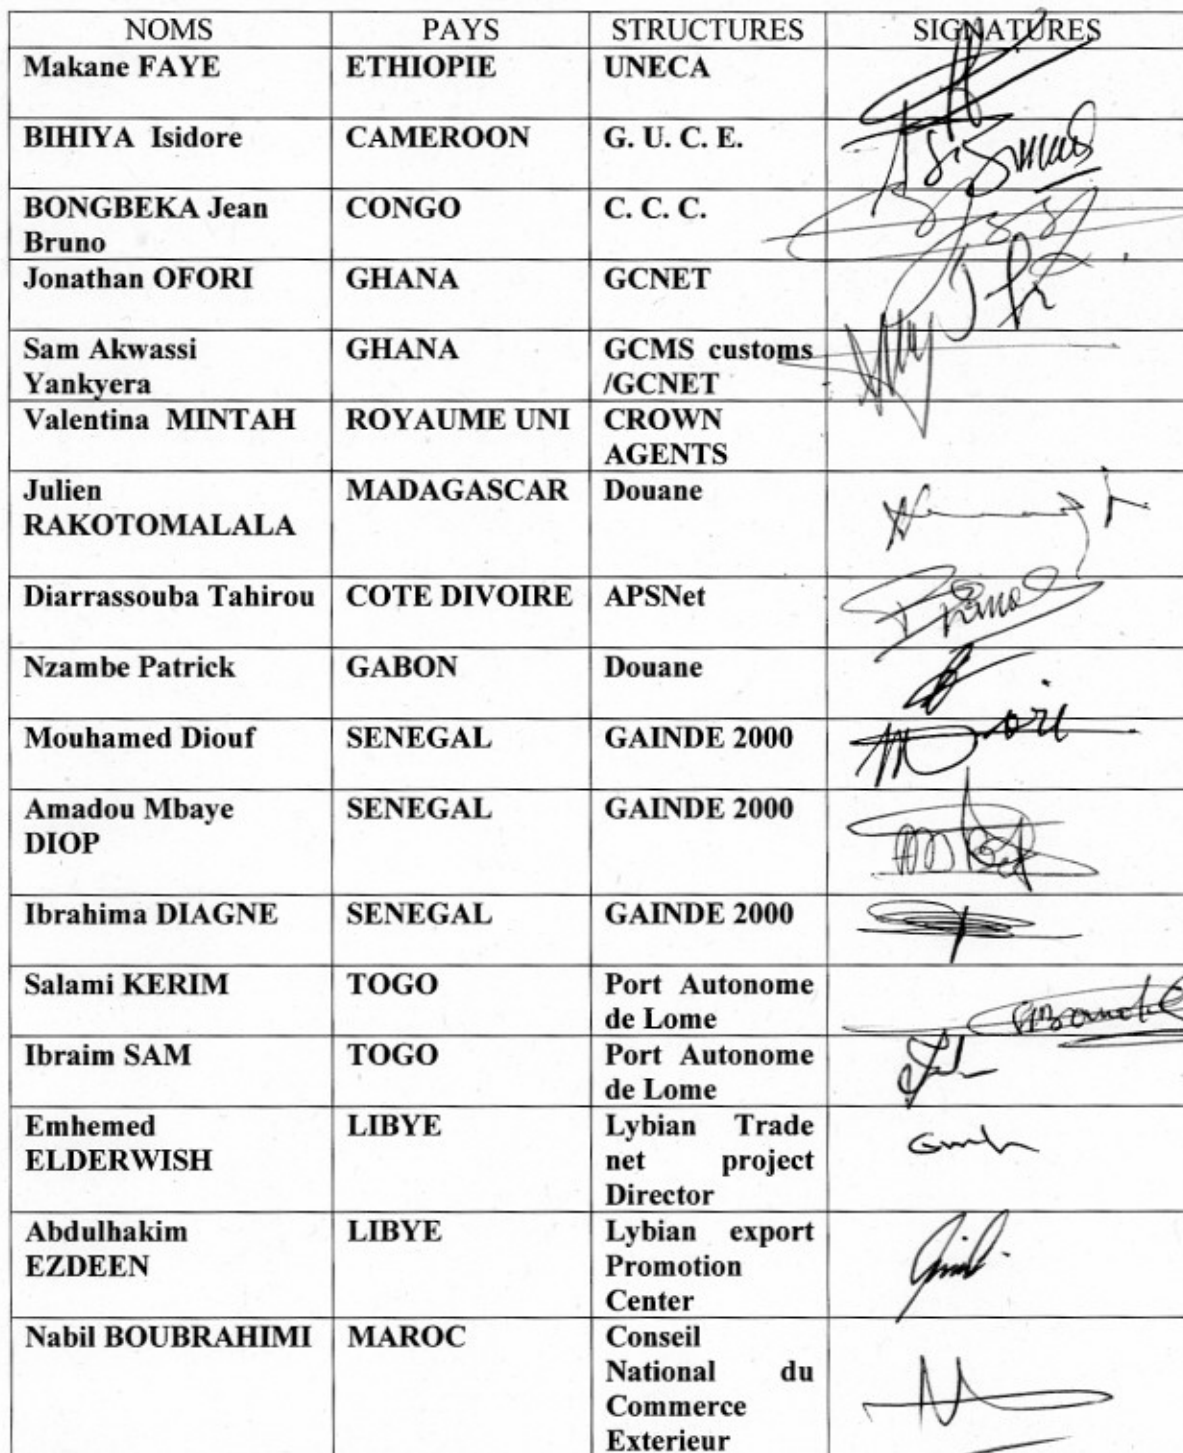 NOMS PAYS STRUCTURES SIGNATURES
Makane FAYE ETHIOPIE UNECA
BIHIYA Isidore CAMEROON G. U. C. E.
BONGBEKA Jean CONGO C. C. C.
Bruno
Jonathan OFORI GHANA GCNET
Sam Akwassi GHANA GCMS customs
Yankyera /GCNET
Valentina MINTAH ROYAUME UNI CROWN
AGENTS
Julien MADAGASCAR Douane
RAKOTOMALALA
Diarrassouba Tahirou COTE DIVOIRE APSNet
Nzambe Patrick GABON Douane
Mouhamed Diouf SENEGAL GAINDE 2000
Amadou Mbaye SENEGAL GAINDE 2000
DIOP
Ibrahima DIAGNE SENEGAL GAINDE 2000
Salami KERIM TOGO Port Autonome
de Lome
Ibraim SAM TOGO Port Autonome
de Lome
Emhemed LIBYE Lybian Trade
ELDERWISH net project
Director
Abdulhakim LIBYE Lybian export
EZDEEN Promotion
Center
Nabil BOUBRAHIMI MAROC Conseil
National du
Commerce
Exterieur